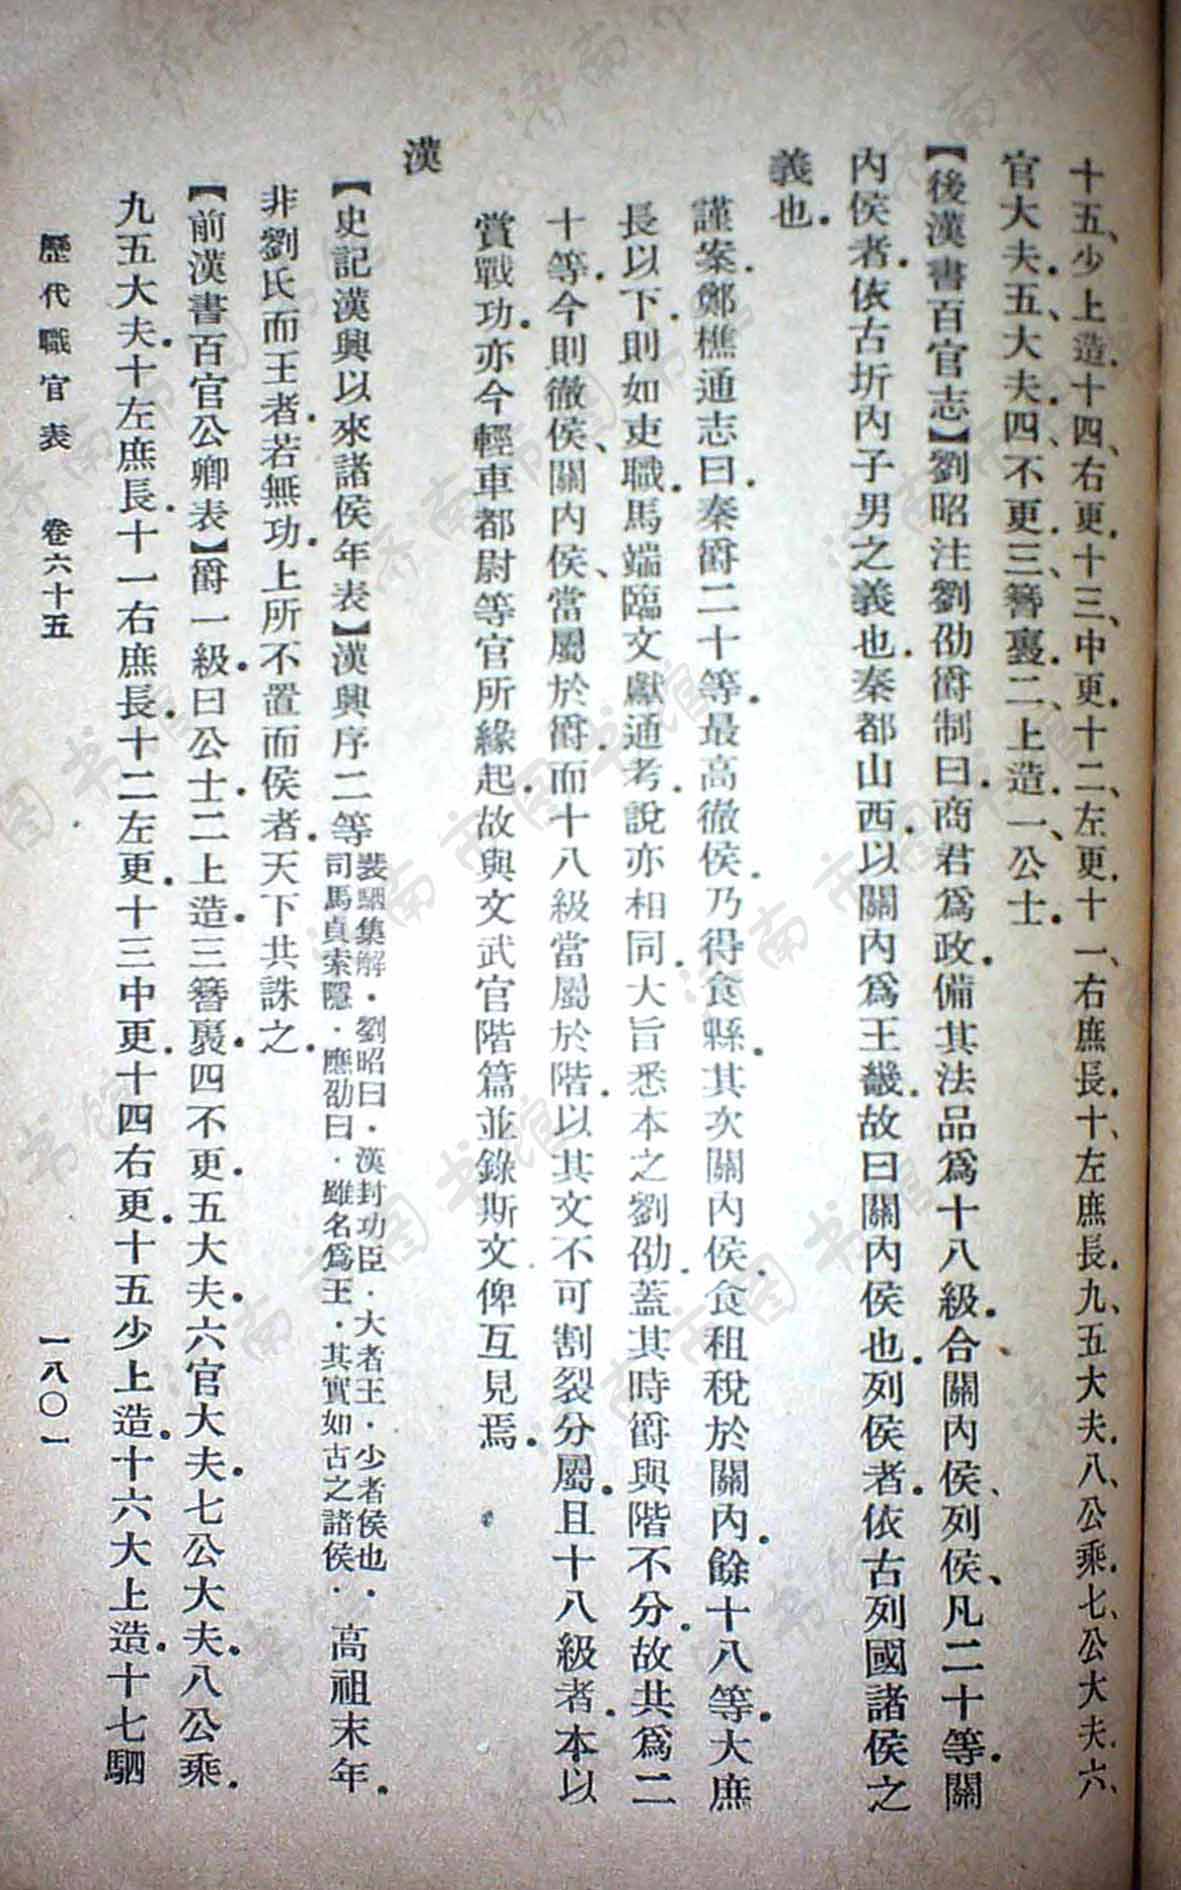 十五、少上造.十四、右更.十三、中更.十二、左更.十一、右庶長.十、左庶長.九、五大夫.八、公乘.七、公大夫.六、
官大夫.五、大夫.四、不更.三、簪裏.二、上造.一、公士.
【後漢書百官志】劉昭注劉劭爵制曰.商君爲政.備其法品爲十八級.合關內侯、列侯、凡二十等.關
內侯者.依古圻內子男之義也.秦都山西.以關內爲王畿.故曰關內侯也.列侯者.依古列國諸侯之
義也.
謹案.鄭樵通志曰.秦爵二十等.最高徹侯.乃得食縣.其次關內侯.食租稅於關內.餘十八等.大庶
長以下.則如吏職.馬端臨文獻通考.說亦相同.大旨悉本之劉劭.蓋其時爵與階不分.故共爲二
十等.今則徹侯、關內侯、當屬於爵.而十八級當屬於階.以其文不可割裂分屬.且十八級者.本以
賞戰功.亦今輕車都尉等官所緣起.故與文武官階篇並錄斯文.俾互見焉.
漢
【史記漢興以來諸侯年表】漢興序二等裴駰集解.劉昭曰.漢封功臣.大者王.少者侯也.司馬貞索隱.應劭曰.雖名爲王.其實如古之諸侯.高祖末年.
非劉氏而王者.若無功.上所不置而侯者.天下共誅之.
【前漢書百官公卿表】爵一級曰公士.二上造.三簪裏.四不更.五大夫.六官大夫.七公大夫.八公乘.
九五大夫.十左庶長.十一右庶長.十二左更.十三中更.十四右更.十五少上造.十六大上造.十七駟
歷代職官表 卷六十五 一八〇一
济南市图书馆